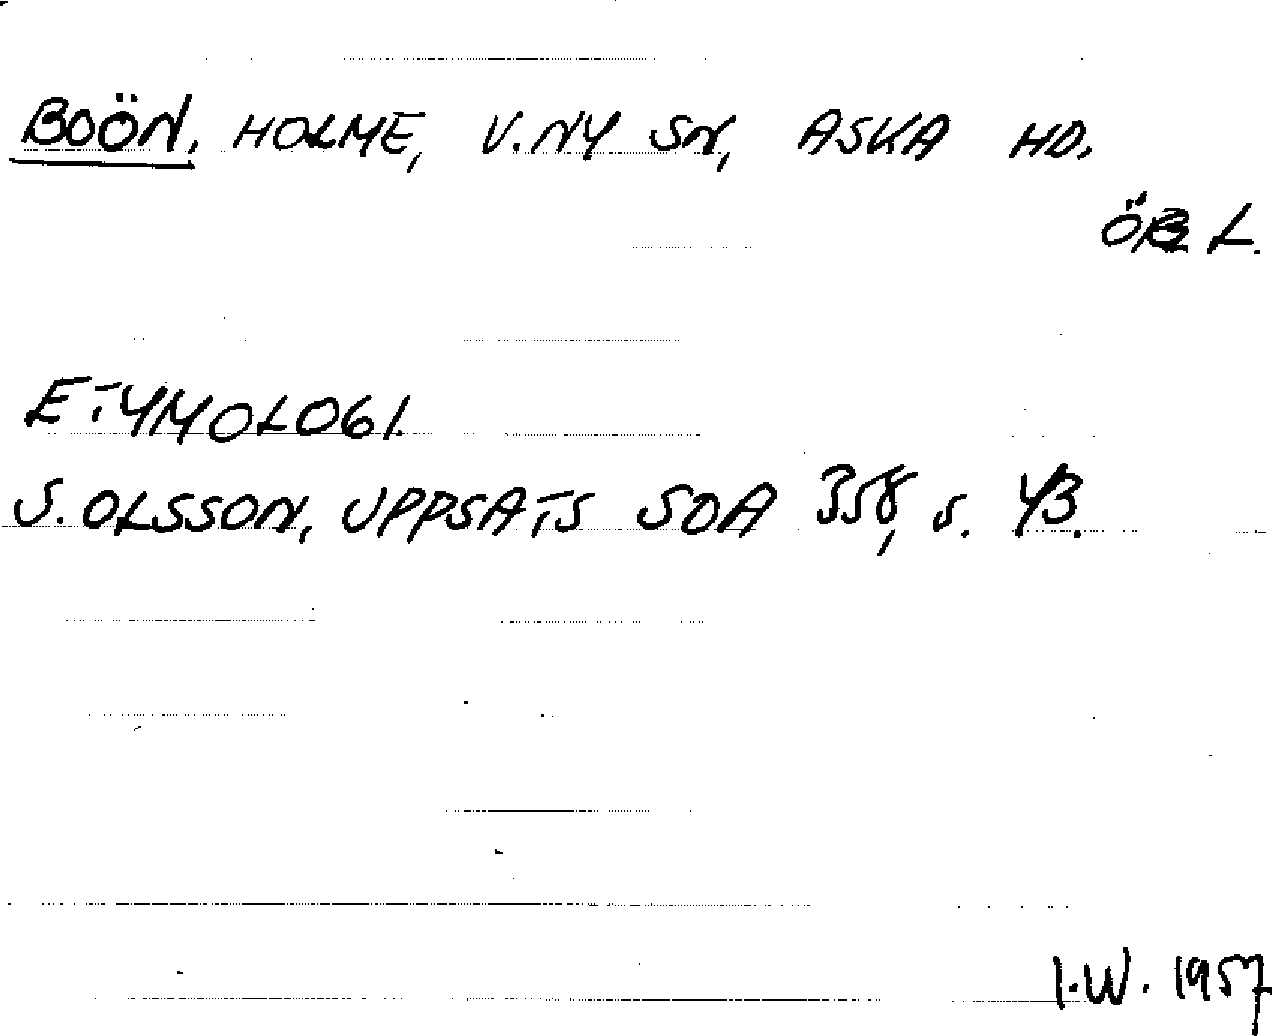 BOÖN, HOLME, V. NY SN, ASKA HD,
L.
ETYMOLOGI.
S. OLSSON, UPPSATS SOA 358, s. 43.
I.W. 1957